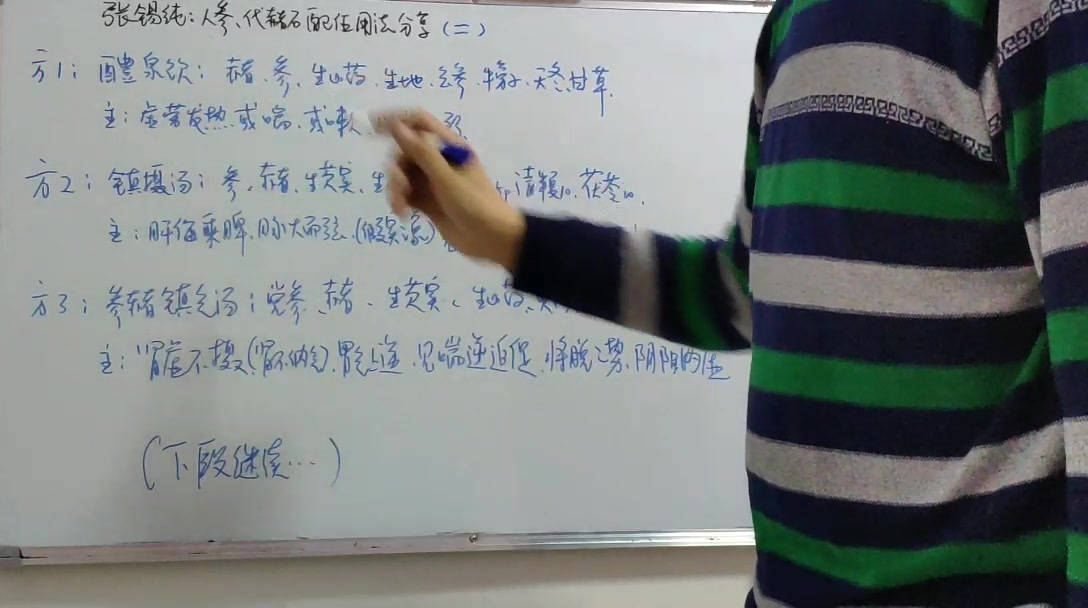 张锡纯：人参、代赭石配伍用法分享（二）
方1：醴泉饮：赭、参、生山药、生地、玄参、牛蒡子、天冬、甘草。
主：虚劳发热、或喘、或嗽
方2：镇摄汤：参、赭、生芡实、生 清夏10、茯苓10。
主：肝伤乘脾、脉大而弦、(假实象)
方3：参赭镇气汤；党参、赭、生芡实、生山药、
主：肾虚不摄(肾不纳气)、胃气上逆、见喘逆迫促、将脱之势、阴阳两虚
（下段继续…）